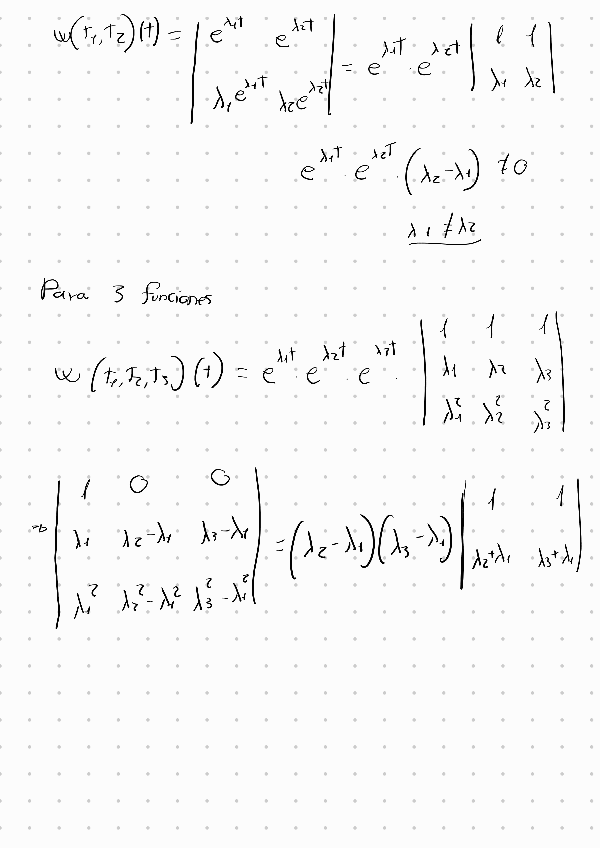 w(t₁,t₂)(t) = | e^{λ₁t} e^{λ₂t} ; λ₁e^{λ₁t} λ₂e^{λ₂t} | = e^{λ₁t} · e^{λ₂t} | 1 1 ; λ₁ λ₂ |
e^{λ₁t} · e^{λ₂t} · (λ₂-λ₁) ≠0
λ₁ ≠ λ₂
Para 3 funciones
w (t₁,t₂,t₃)(t) = e^{λ₁t} · e^{λ₂t} · e^{λ₃t} · | 1 1 1 ; λ₁ λ₂ λ₃ ; λ₁² λ₂² λ₃² |
| 1 0 0 ; λ₁ λ₂-λ₁ λ₃-λ₁ ; λ₁² λ₂²-λ₁² λ₃²-λ₁² | = (λ₂-λ₁)(λ₃-λ₁) | 1 1 ; λ₂+λ₁ λ₃+λ₁ |